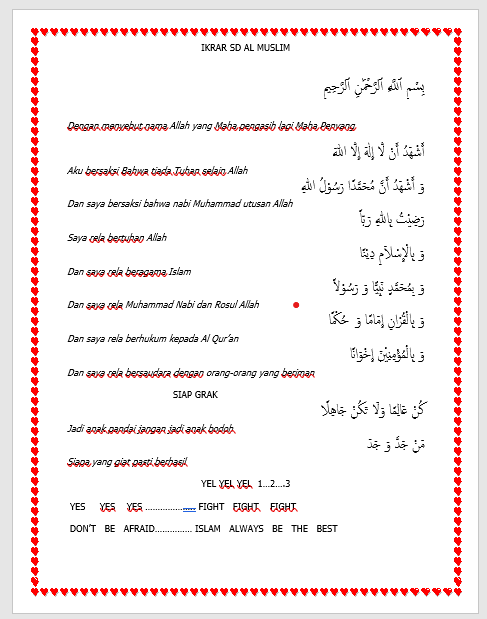 IKRAR SD AL MUSLIM
بِسْمِ ٱللَّهِ ٱلرَّحْمَٰنِ ٱلرَّحِيمِ
Dengan manyebut nama Allah yang Maha pengasih lagi Maha Penyang
أَشْهَدُ أَنْ لَّا إِلَٰهَ إِلَّا اللهَ
Aku bersaksi Bahwa tiada Tuhan selain Allah
وَ أَشْهَدُ أَنَّ مُحَمَّدًا رَسُوْلُ اللهِ
Dan saya bersaksi bahwa nabi Muhammad utusan Allah
رَضِيْتُ بِاللهِ رَبًّا
Saya rela bertuhan Allah
وَ بِالْإِسْلَامِ دِيْنًا
Dan saya rela beragama Islam
وَ بِمُحَمَّدٍ نَبِيًّا وَ رَسُوْلاً
Dan saya rela Muhammad Nabi dan Rosul Allah
وَ بِالْقُرْانِ إِمَامًا وَ حُكْمًا
Dan saya rela berhukum kepada Al Qur’an
وَ بِالْمُؤْمِنِيْنَ إِخْوَانًا
Dan saya rela bersaudara dengan orang-orang yang beriman
SIAP GRAK
كُنْ عَالِمًا وَلَا تَكُنْ جَاهِلًا
Jadi anak pandai jangan jadi anak bodoh
مَنْ جَدَّ وَ جَدَ
Siapa yang giat pasti berhasil
YEL YEL YEL 1…2….3
YES YES YES ……………….... FIGHT FIGHT FIGHT
DON’T BE AFRAID…………… ISLAM ALWAYS BE THE BEST